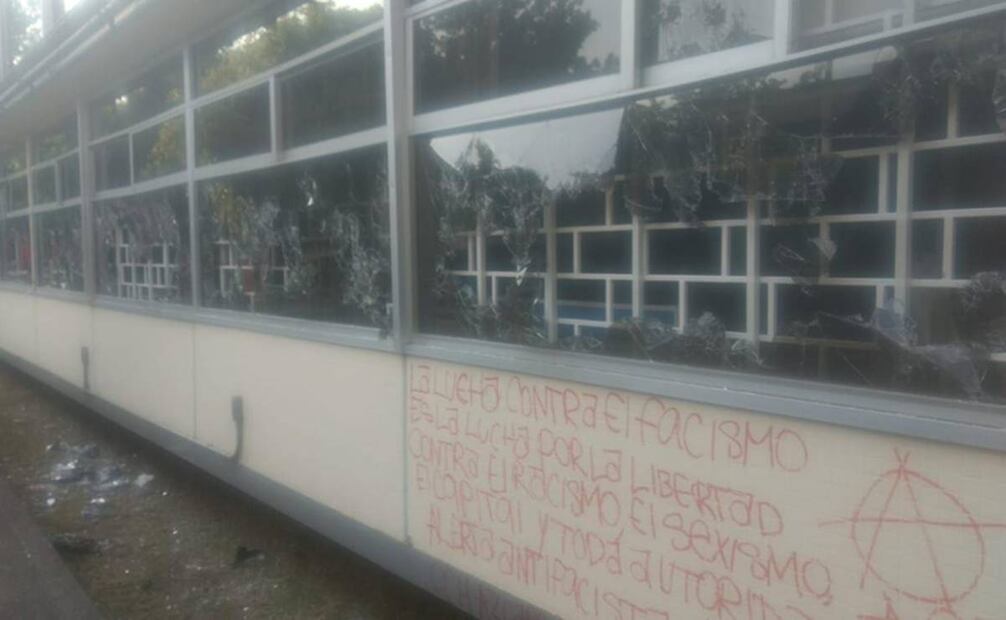 La LUCHA CONTRa El FACISMO
ES La LUCHA POR La LIBERTAD
CONTRA El RACISMO, El SEXISMO,
El CAPITAl Y TODA aUTORIDa
AlERTa ANTIFACISTa